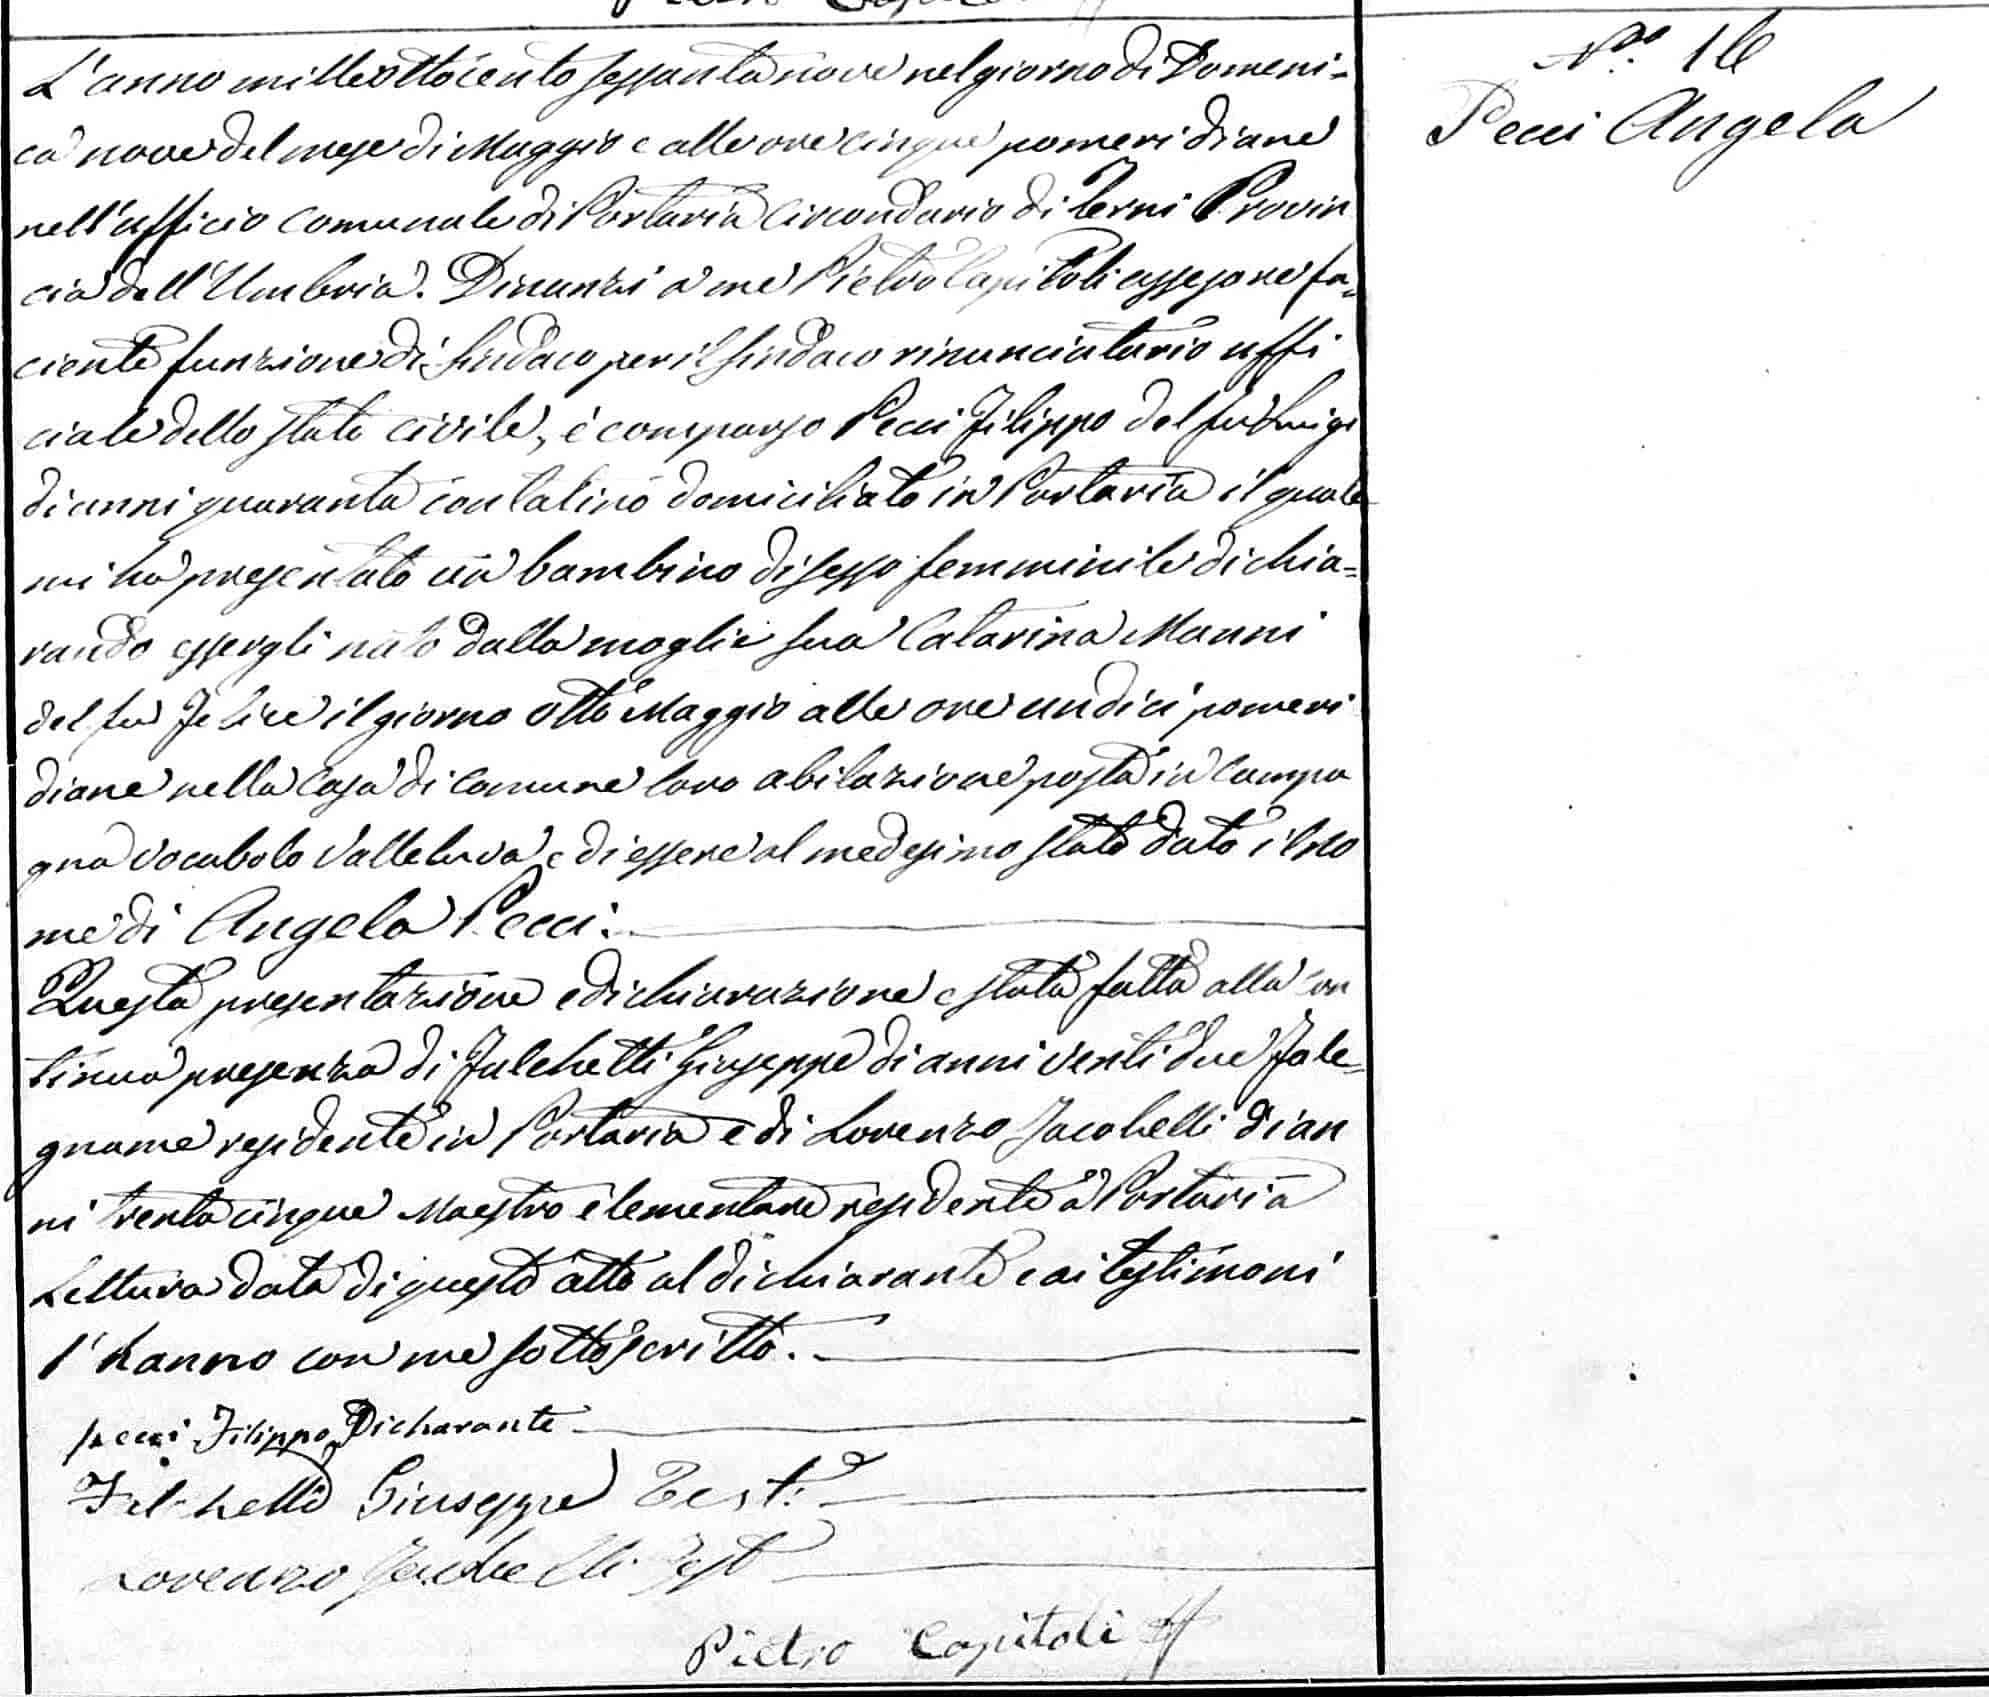 L'anno milleottocento sessantanove nel giorno di Domeni=
ca nove del mese di Maggio e alle ore cinque pomeridiane
nell'ufficio comunale di Portaria Circondario di Terni Provin
cia dell'Umbria. Dinanzi a me Pietro Capitoli assessore fa=
ciente funzione di Sindaco per il Sindaco rinunciatario uffi
ciale dello stato civile, è comparso Pecci Filippo del fu Luigi
di anni quaranta contatino domiciliato in Portaria il quale
mi ha presentato un bambino di sesso femminile dichia=
rando essergli nato dalla moglie sua Catarina Manni
del fu Felice il giorno otto Maggio alle ore undici pomeri
diane nella Casa di comune loro abitazione posta in Campa
gna vocabolo e di essere al medesimo stato dato il no
me di Angela Pecci.
Questa presentazione e dichiarazione e stata fatta alla con
tinua presenza di Falchetti Giuseppe di anni venti due Fale=
gname residente in Portaria e di Lorenzo Jacobelli di an
ni trentacinque Maestro elementare residente a Portaria
Lettura data di questo atto al dichiarante e ai testimoni
l'hanno con me sottoscritto.
pecci Filippo Dicharante
Falchetti Giuseppe Test.e
Lorenzo Jacobelli Test
Pietro Capitoli ff
N.o 16
Pecci Angela